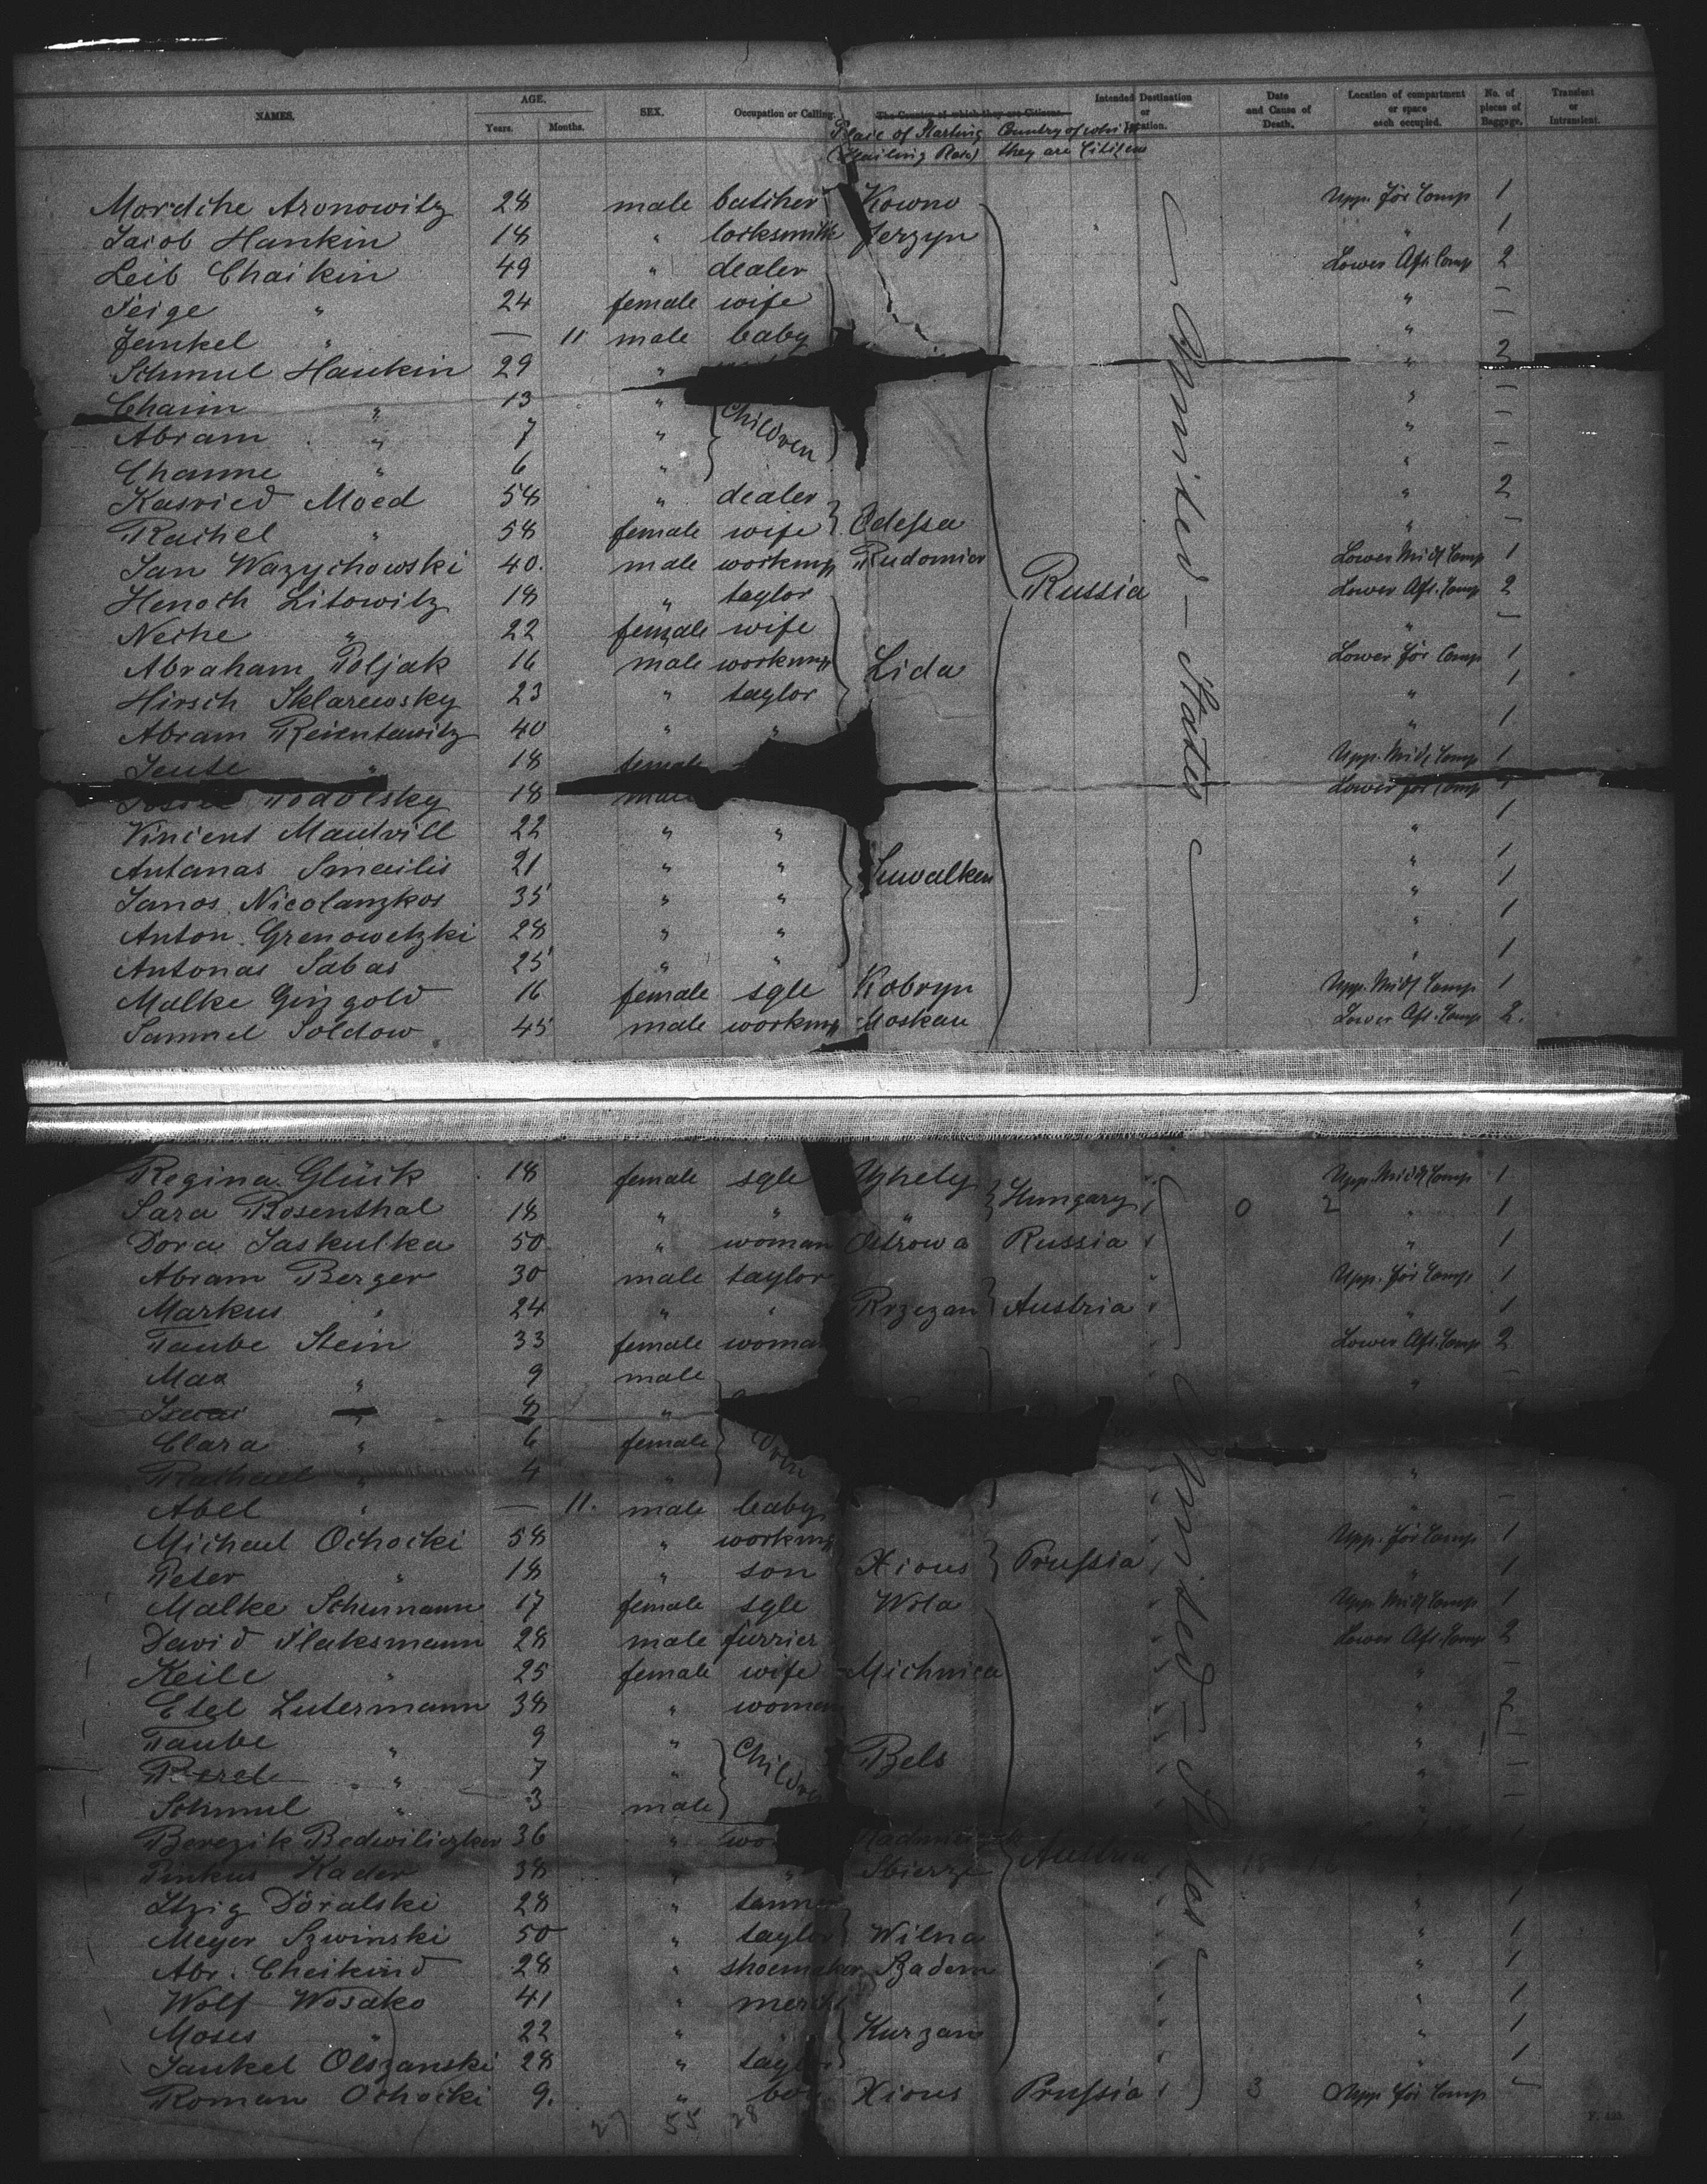 NAMES. AGE. SEX. Occupation or Calling. The Country of which they are Citizens. Intended Destination or Location. Date and Cause of Death. Location of compartment or space each occupied. No. of pieces of Baggage. Transient or Intransient.
Years. Months. Place of Starting Country of which
they are Citizens
Mordche Aronowitz 28 male butcher Kowno Upp. for Comp 1
Jacob Hankin 18 " locksmith Jerzyn " 1
Leib Chaikin 49 " dealer Lower Aft. Comp 2
Feige " 24 female wife " —
Jankel " — 11 male baby " —
Schmul Hankin 29 " " 2
Chaim " 13 " Children " —
Abram " 7 " " —
Channe " 6 " " —
Kasried Moed 58 " dealer " 2
Rachel " 58 female wife Odessa " —
Jan Wazychowski 40. male workmn Rudomier Lower Midl Comp 1
Henoch Litowitz 18 " taylor Russia Lower Aft. Comp 2
Neche " 22 female wife " —
Abraham Poljak 16 male workmn Lida Lower for Comp 1
Hirsch Sklarewsky 23 " taylor " 1
Abram 40 " " " 1
Jente " 18 female Upp. Midl Comp 1
Podolsky 18 male Lower for Comp 1
Vincent Mautvill 22 " " " 1
Antanas Smailis 21 " " Suwalken " 1
Janos Nicolanzkos 35 " " " 1
Anton Grenowetzki 28 " " " 1
Antonas Sabas 25 " " " 1
Malke Gingold 16 female sgle Kobryn Upp. Midl Comp 1
Samuel Soldow 45 male workmn Moskau Lower Aft. Comp 2.
United — States
Regina Glück 18 female sgle Ujhely Upp. Midl Comp 1
Sara Rosenthal 18 " " " Hungary 0 2 " 1
Dora Jaskulka 50 " woman Ostrowa Russia " 1
Abram Berger 30 male taylor Upp. for Comp 1
Markus " 24 " " Rrzezan Austria " 1
Taube Stein 33 female woman Lower Aft. Comp 2
Max " 9 male " —
" 8 "
Clara " 6 female
Rachael " 4 " " —
Abel " — 11. male baby " —
Michael Ochocki 58 " workmn Upp. for Comp 1
Peter " 18 " son Xions Prussia " 1
Malke Schumann 17 female sgle Wola Upp. Midl Comp 1
David Flaksmann 28 male furrier Lower Aft. Comp 2
Keile " 25 female wife Michnica " —
Etel Lutermann 38 " woman " 2
Taube " 9 " Children " —
" 7 " Bels " —
Schmul " 3 male " —
Berezik Bedwiliczker 36 " 1
Pinkus Kader 38 " " Sbierze Austria 18 16
Itzig Döralski 28 " tanner " 1
Meyer Szwinski 50 " taylor Wilna " 1
Abr. Cheikind 28 " shoemaker Szadom " 1
Wolf Wosako 41 " merch " 1
Moses " 22 " " Kurzan " 1
Jankel Olszanski 28 " taylor " 1
Roman Ochocki 9. " boy Xions Prussia 3 Upp. for Comp —
United — States
27 55 28